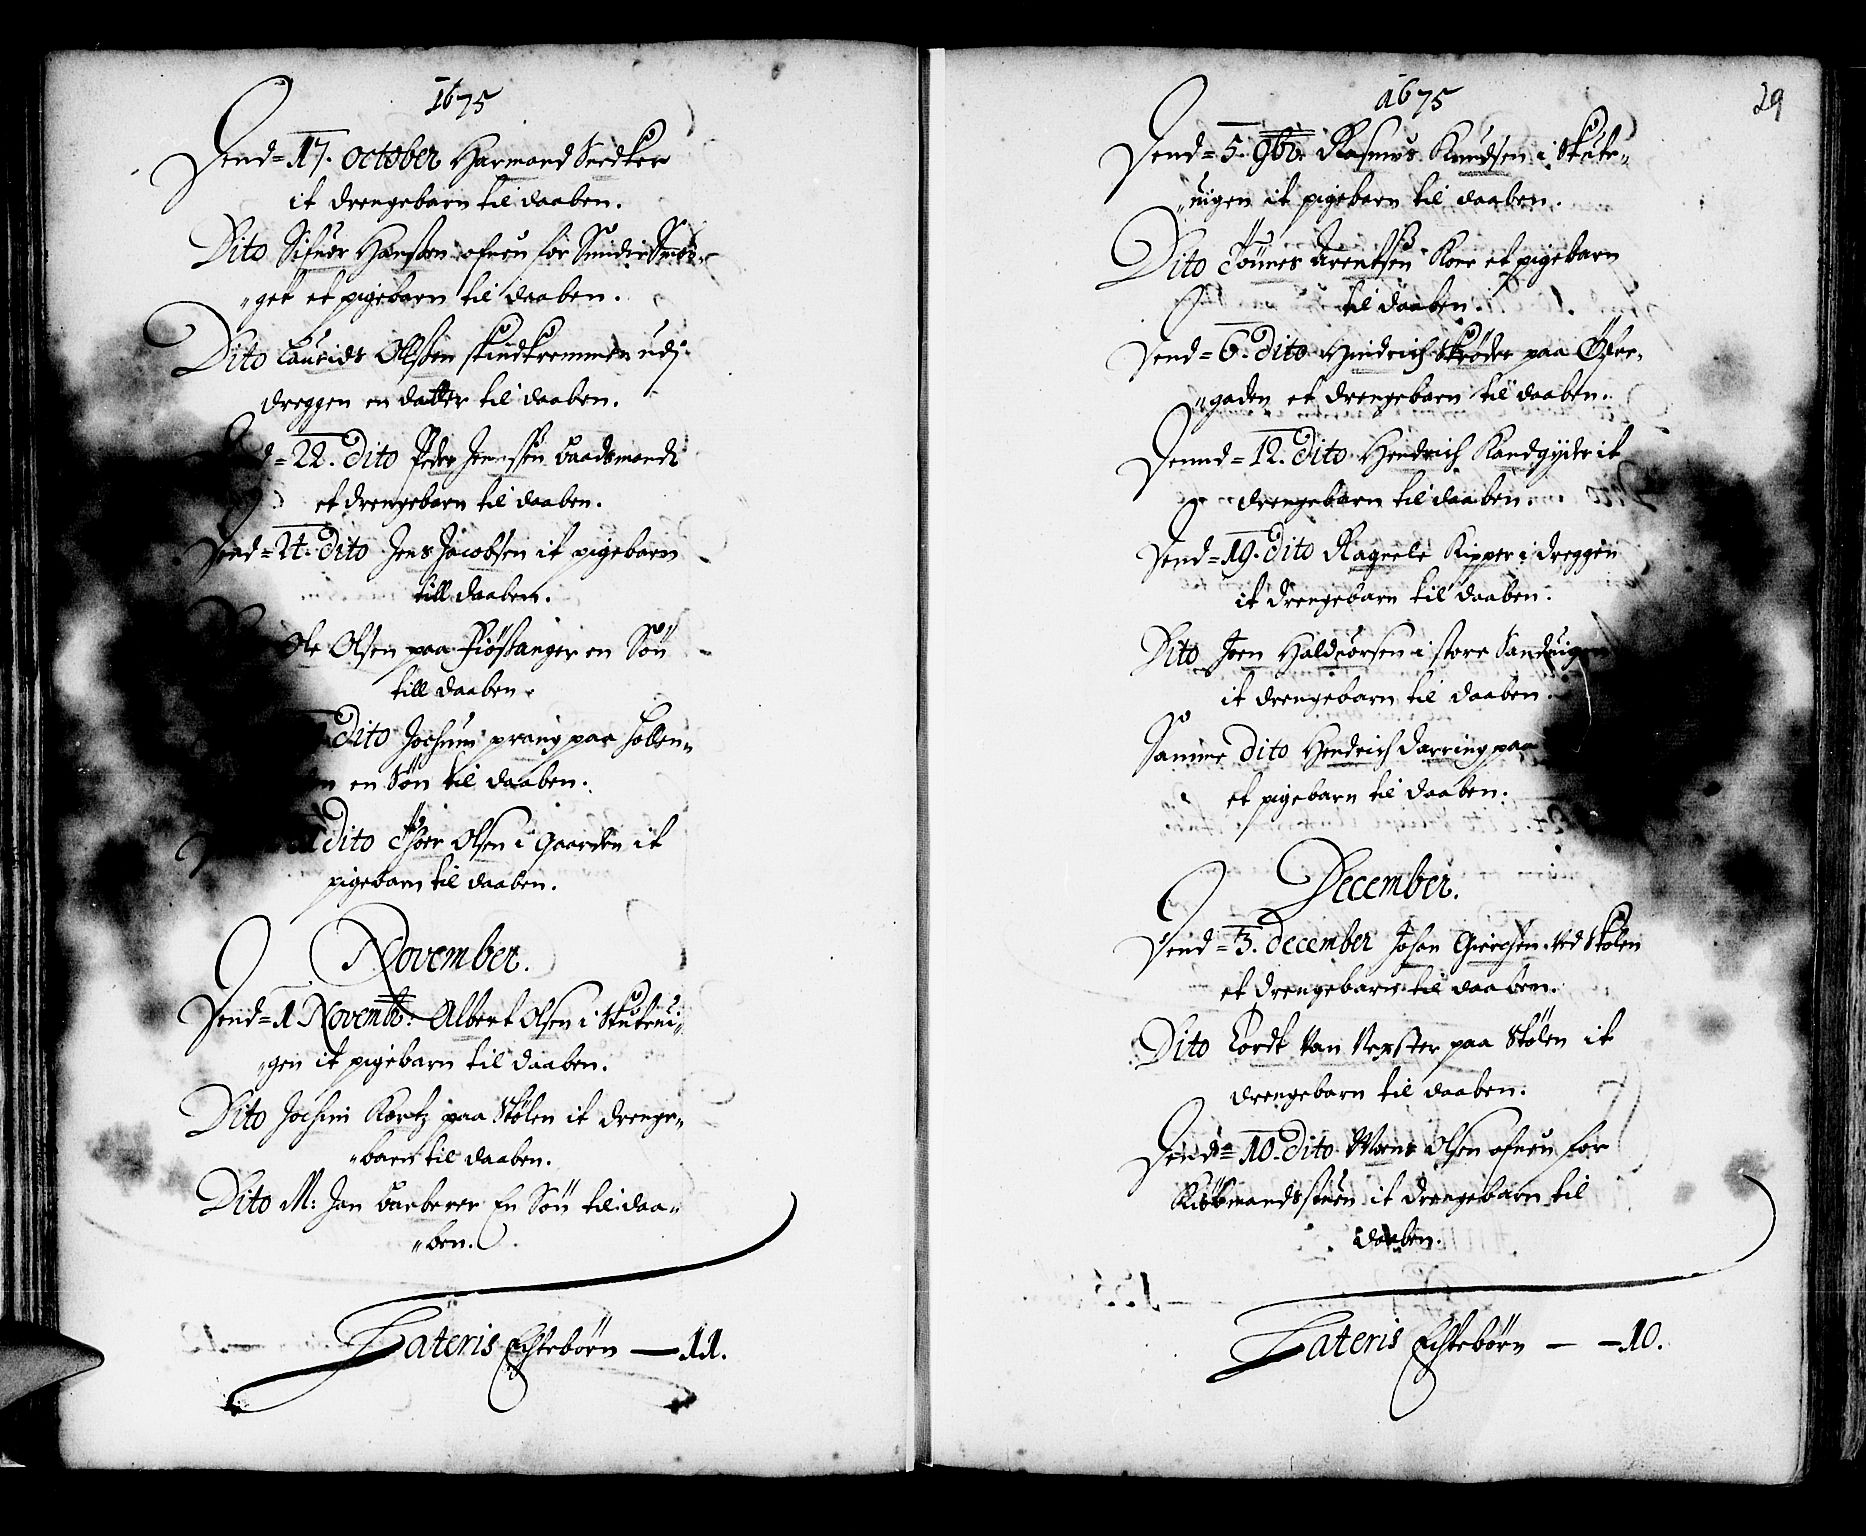 1675
Dend = 17. October Harmand Seedker
it drengebarn til daaben.
Dito Sifuer Hanssen ofuen for Smidie Smör„
„get et pigebarn til daaben.
Dito Laurids Ollssen skindkremmer udj
dreggen en datter til daaben.
= 22. dito Peder Jenssen baadsmand
et drengebarn til daaben.
Dend = 24. dito Jens Jacobsen it pigebarn
till daaben.
Ole Olsen paa Fiösanger en Sön
till daaben.
dito Jochum prang paa Holen„
en Sön til daaben.
dito Thoer Olsen i Gaarden it
pigebarn til daaben.
November.
Dend = 1 Novemb: Albert Olsen i Skuteui„
„gen it pigebarn til daaben.
Dito Jochim Kortz paa Stölen it drenge„
„barn til daaben.
Dito M: Jan barberer En Sön til daa„
„ben.
Lateris Echtebörn — 11.
1675
29
Dend = 5. 9br. Rasmus Knudsen i Skute„
„uigen it pigebarn til daaben.
Dito Tönnes Arentsen Kone et pigebarn
til daaben.
Dend = 6. dito Hindrich Skröder paa Öfre„
„gaden et drengebarn til daaben.
Dennd = 12. dito Hendrich Kandgyder it
drengebarn til daaben.
Dend = 19. dito Ragnele Kipper i dreggen
it drengebarn til daaben.
Dito Joen Halduorsen i store Sanduigen
it drengebarn til daaben.
Samme dito Hendrich Darring paa
et pigebarn til daaben.
December.
Dend = 3. december Johan Giertsen ved Stölen
et drengebarn til daaben.
Dito Cordt Van Vexster paa Stölen it
drengebarn til daaben.
Dend = 10. dito Mons Olsen ofuen for
Kiöbmandsstuen it drengebarn til
daaben.
Lateris Echtebörn — — 10.